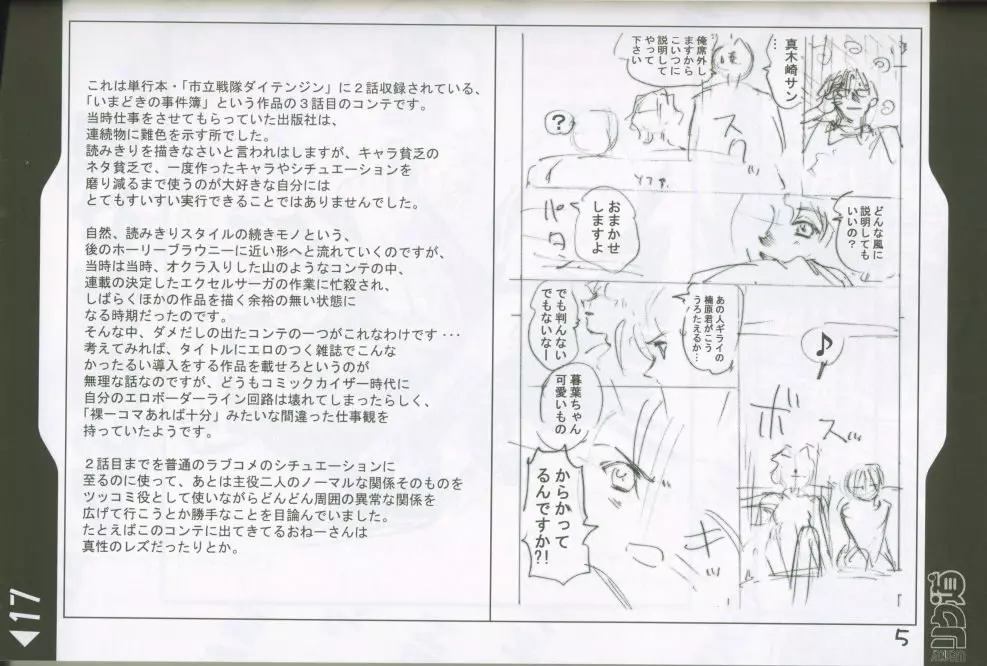 これは単行本・「市立戦隊ダイテンジン」に２話収録されている、
「いまどきの事件簿」という作品の３話目のコンテです。
当時仕事をさせてもらっていた出版社は、
連続物に難色を示す所でした。
読みきりを描きなさいと言われはしますが、キャラ貧乏の
ネタ貧乏で、一度作ったキャラやシチュエーションを
磨り減るまで使うのが大好きな自分には
とてもすいすい実行できることではありませんでした。
自然、読みきりスタイルの続きモノという、
後のホーリーブラウニーに近い形へと流れていくのですが、
当時は当時、オクラ入りした山のようなコンテの中、
連載の決定したエクセルサーガの作業に忙殺され、
しばらくほかの作品を描く余裕の無い状態に
なる時期だったのです。
そんな中、ダメだしの出たコンテの一つがこれなわけです･･･
考えてみれば、タイトルにエロのつく雑誌でこんな
かったるい導入をする作品を載せろというのが
無理な話なのですが、どうもコミックカイザー時代に
自分のエロボーダーライン回路は壊れてしまったらしく、
「裸一コマあれば十分」みたいな間違った仕事観を
持っていたようです。
２話目までを普通のラブコメのシチュエーションに
至るのに使って、あとは主役二人のノーマルな関係そのものを
ツッコミ役として使いながらどんどん周囲の異常な関係を
広げて行こうとか勝手なことを目論んでいました。
たとえばこのコンテに出てきてるおねーさんは
真性のレズだったりとか。
真木崎サン
…
俺席外し
ますから
こいつに
説明して
やって
下さい
スク
?
ソファ
どんな風に
説明しても
いいの?
おまかせ
しますよ
パタン
あの人ギライの
楠原君がこう
うろたえるか…
でも判んない
でもないなー
暮葉ちゃん
可愛いもの
♪
ボスッ
からかって
るんですか?!
キッ
5
17